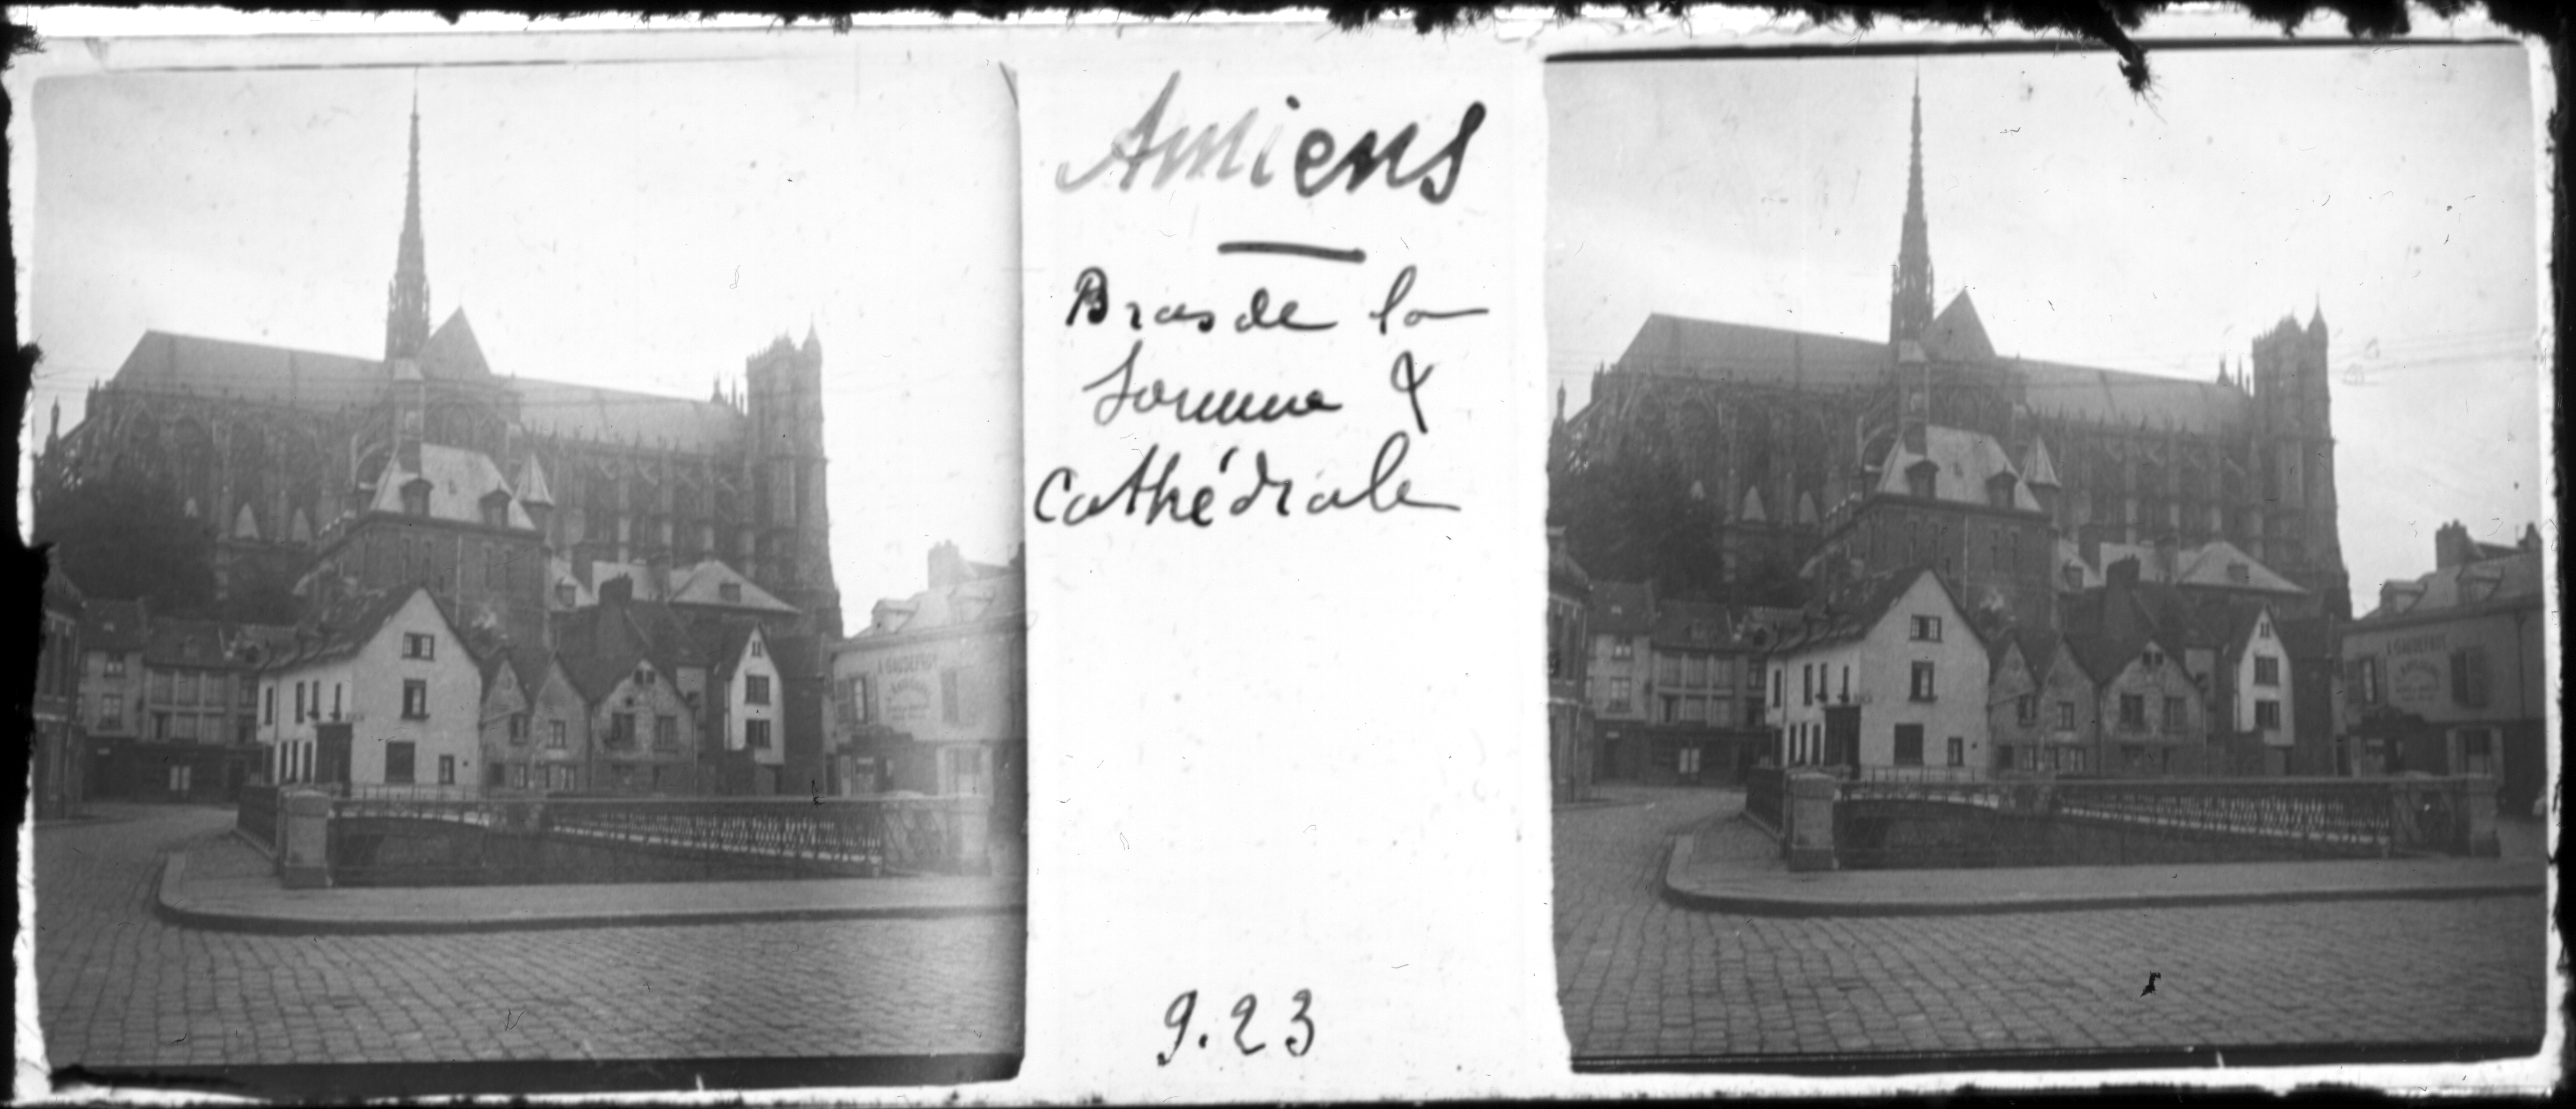 Amiens
Bras de la
Somme &
Cathédrale
9.23
A. GAUDEFROY
A. GAUDEFROY